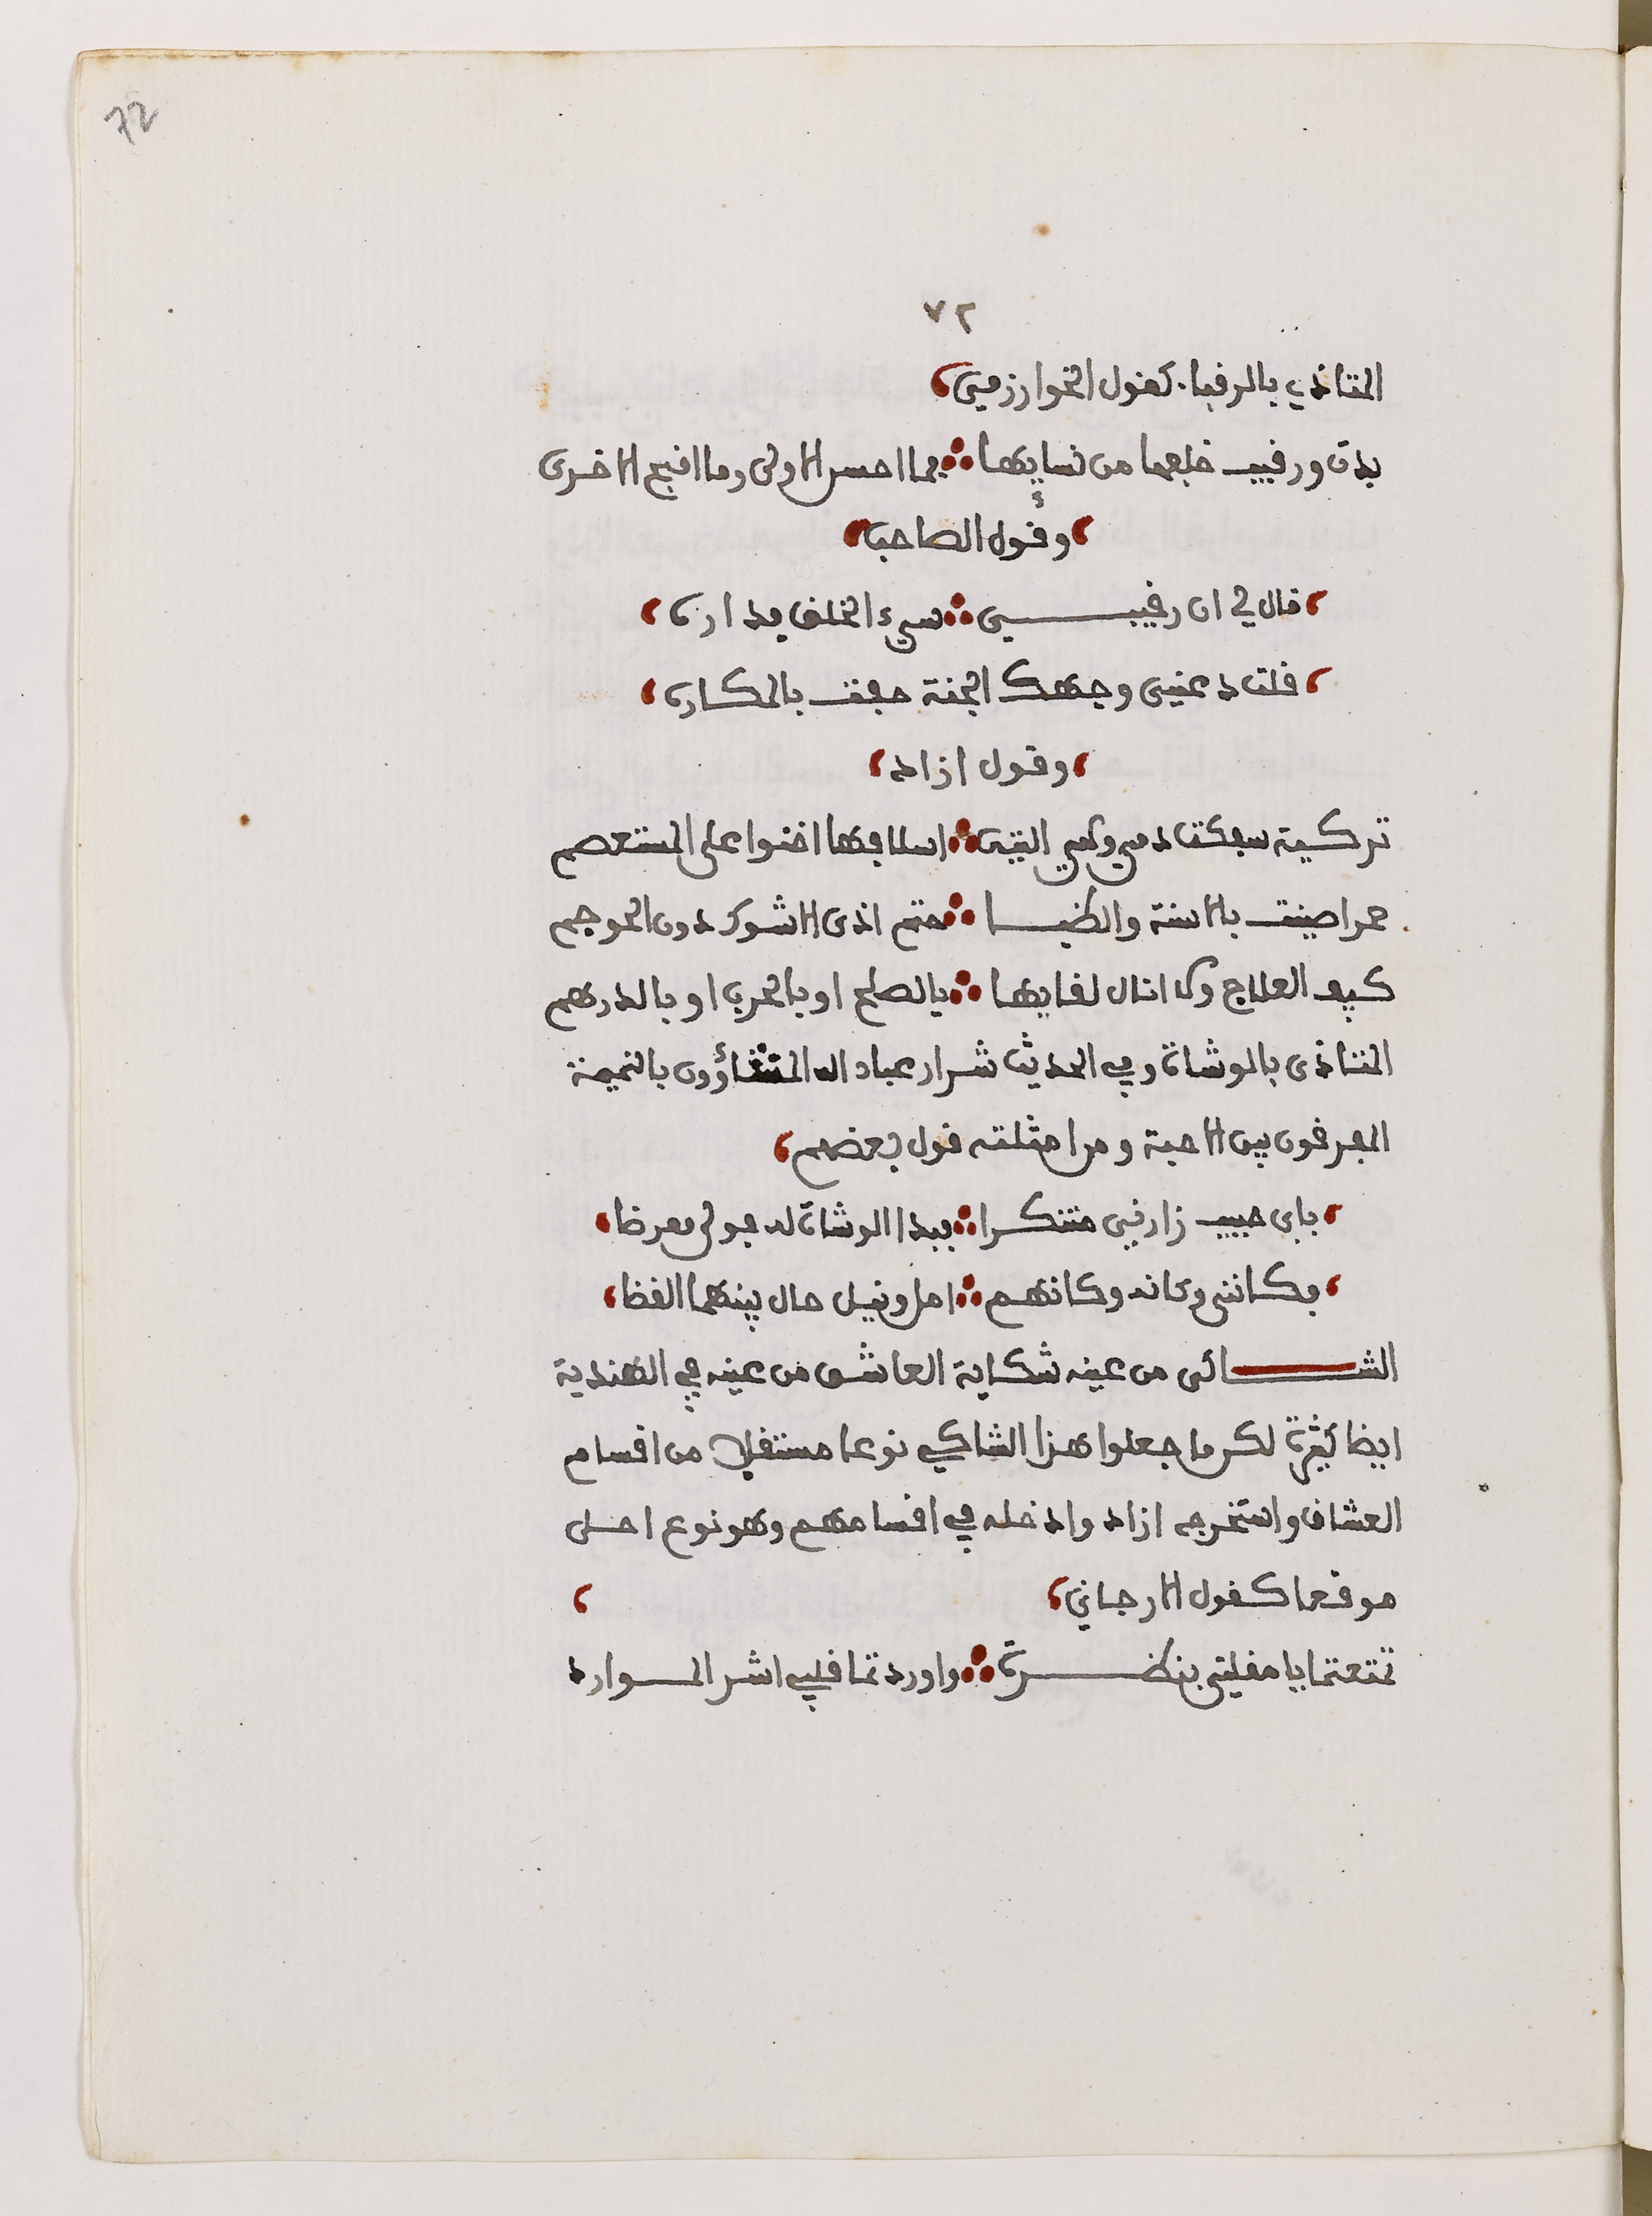 72
٧٢
المتاذي بالرقباء كقول الخوارزمي
بدت ورقيب خلعها من نسايها فما احسن الاولى وما اقبح الاخرى
وقول الصاحب
قال لي ان رقيبي سيء الخلق فداره
قلت دعني وجهك الجنة حفت بالمكاره
وقول ازاد
تركية سفكت دمي اسلافها اخنوا على المستعصم
حمرا صينت بالاسنة والظبا حتم اذى الاشوك دون الحوجم
كيف العلاج وكم انال لقايها بالصلح او بالحرب او بالدرهم
المتاذى بالوشاة وفي الحديث شرار عباد الله المشاؤون بالنميمة
المفرقون بين الاحبة ومن امثلته قول بعضهم
بابي حبيب زارني متنكرا فبدا الوشاة له فولى معرضا
فكانني وكانه وكانهم امل ونيل حال بينهما القضا
الشاكى من عينه شكاية العاشق من عينه في الهندية
ايضا كثيرة لكن ما جعلوا هذا الشاكي نوعا مستقلا من اقسام
العشاق واستخرجه ازاد وادخله في اقسامهم وهو نوع احلى
موقعا كقول الارجاني
تمتعتما يا مقلتي بنظرة واوردتما قلبي اشر الموارد